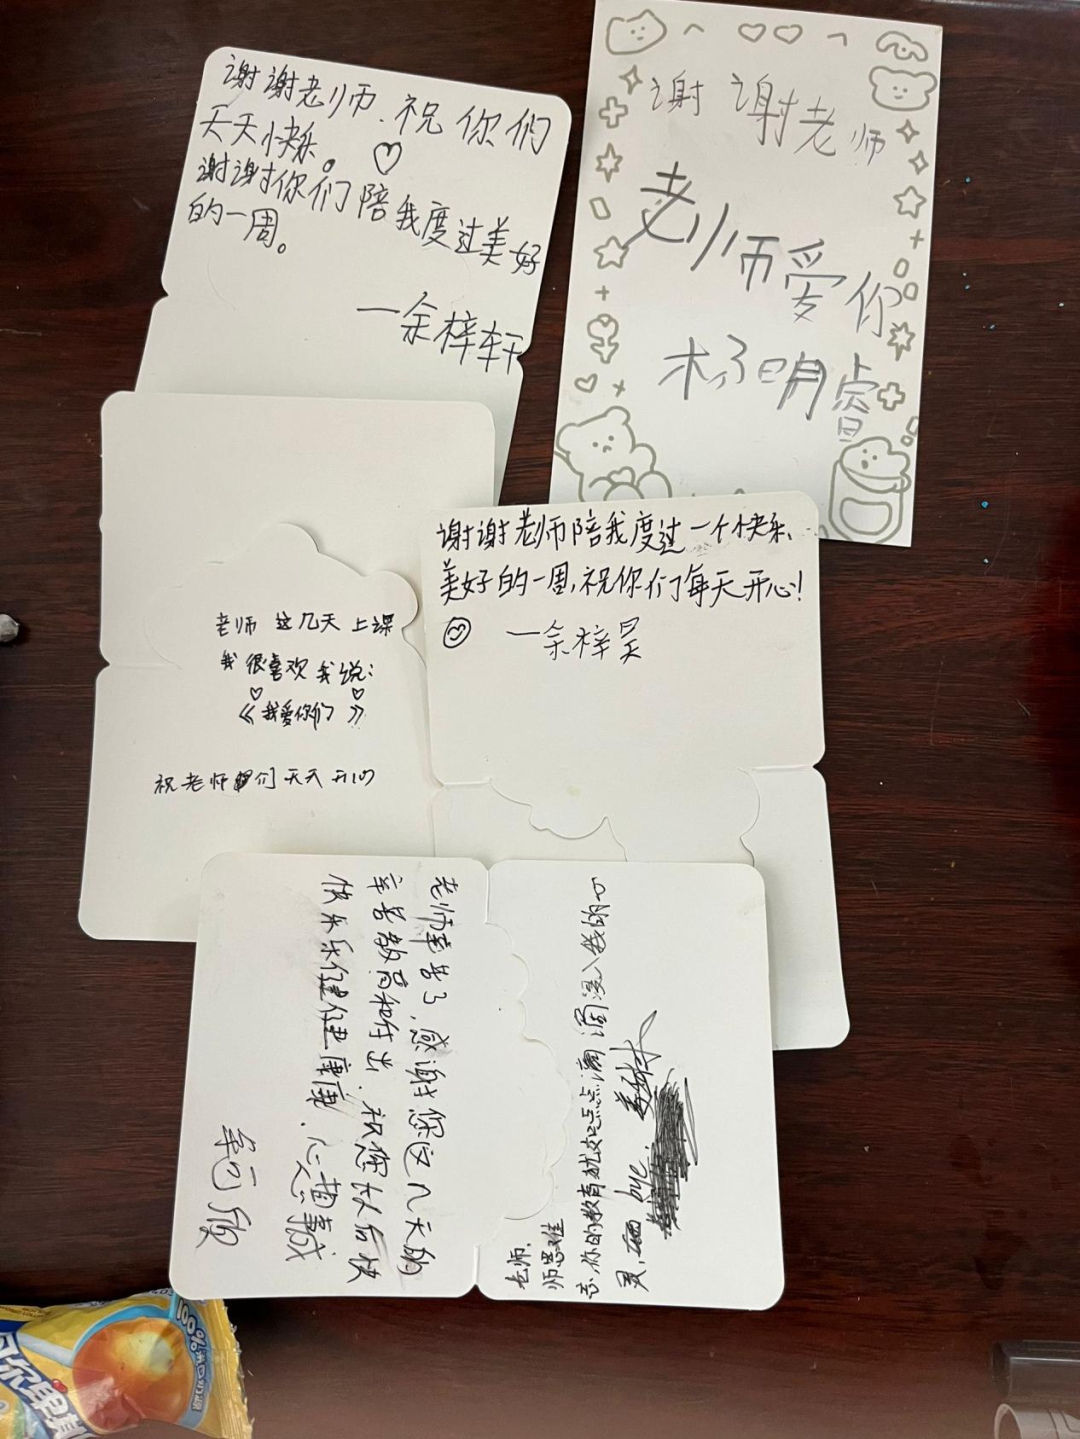 谢谢老师.祝你们
天天快乐。
谢谢你们陪我度过美好
的一周。
一余梓轩
谢谢老师
老师爱你
杨明睿
老师这几天上课
我很喜欢我说:
《我爱你们》
祝老师们天天开心
谢谢老师陪我度过一个快乐、
美好的一周,祝你们每天开心!
一余梓昊
老师辛苦了,感谢您这几天的
辛苦教育和付出,祝您以后快
快乐乐健健康康,心想事成
老师,
师恩难
忘,你的教育就如点点滴滴浸入我的心
灵,bye.
100%